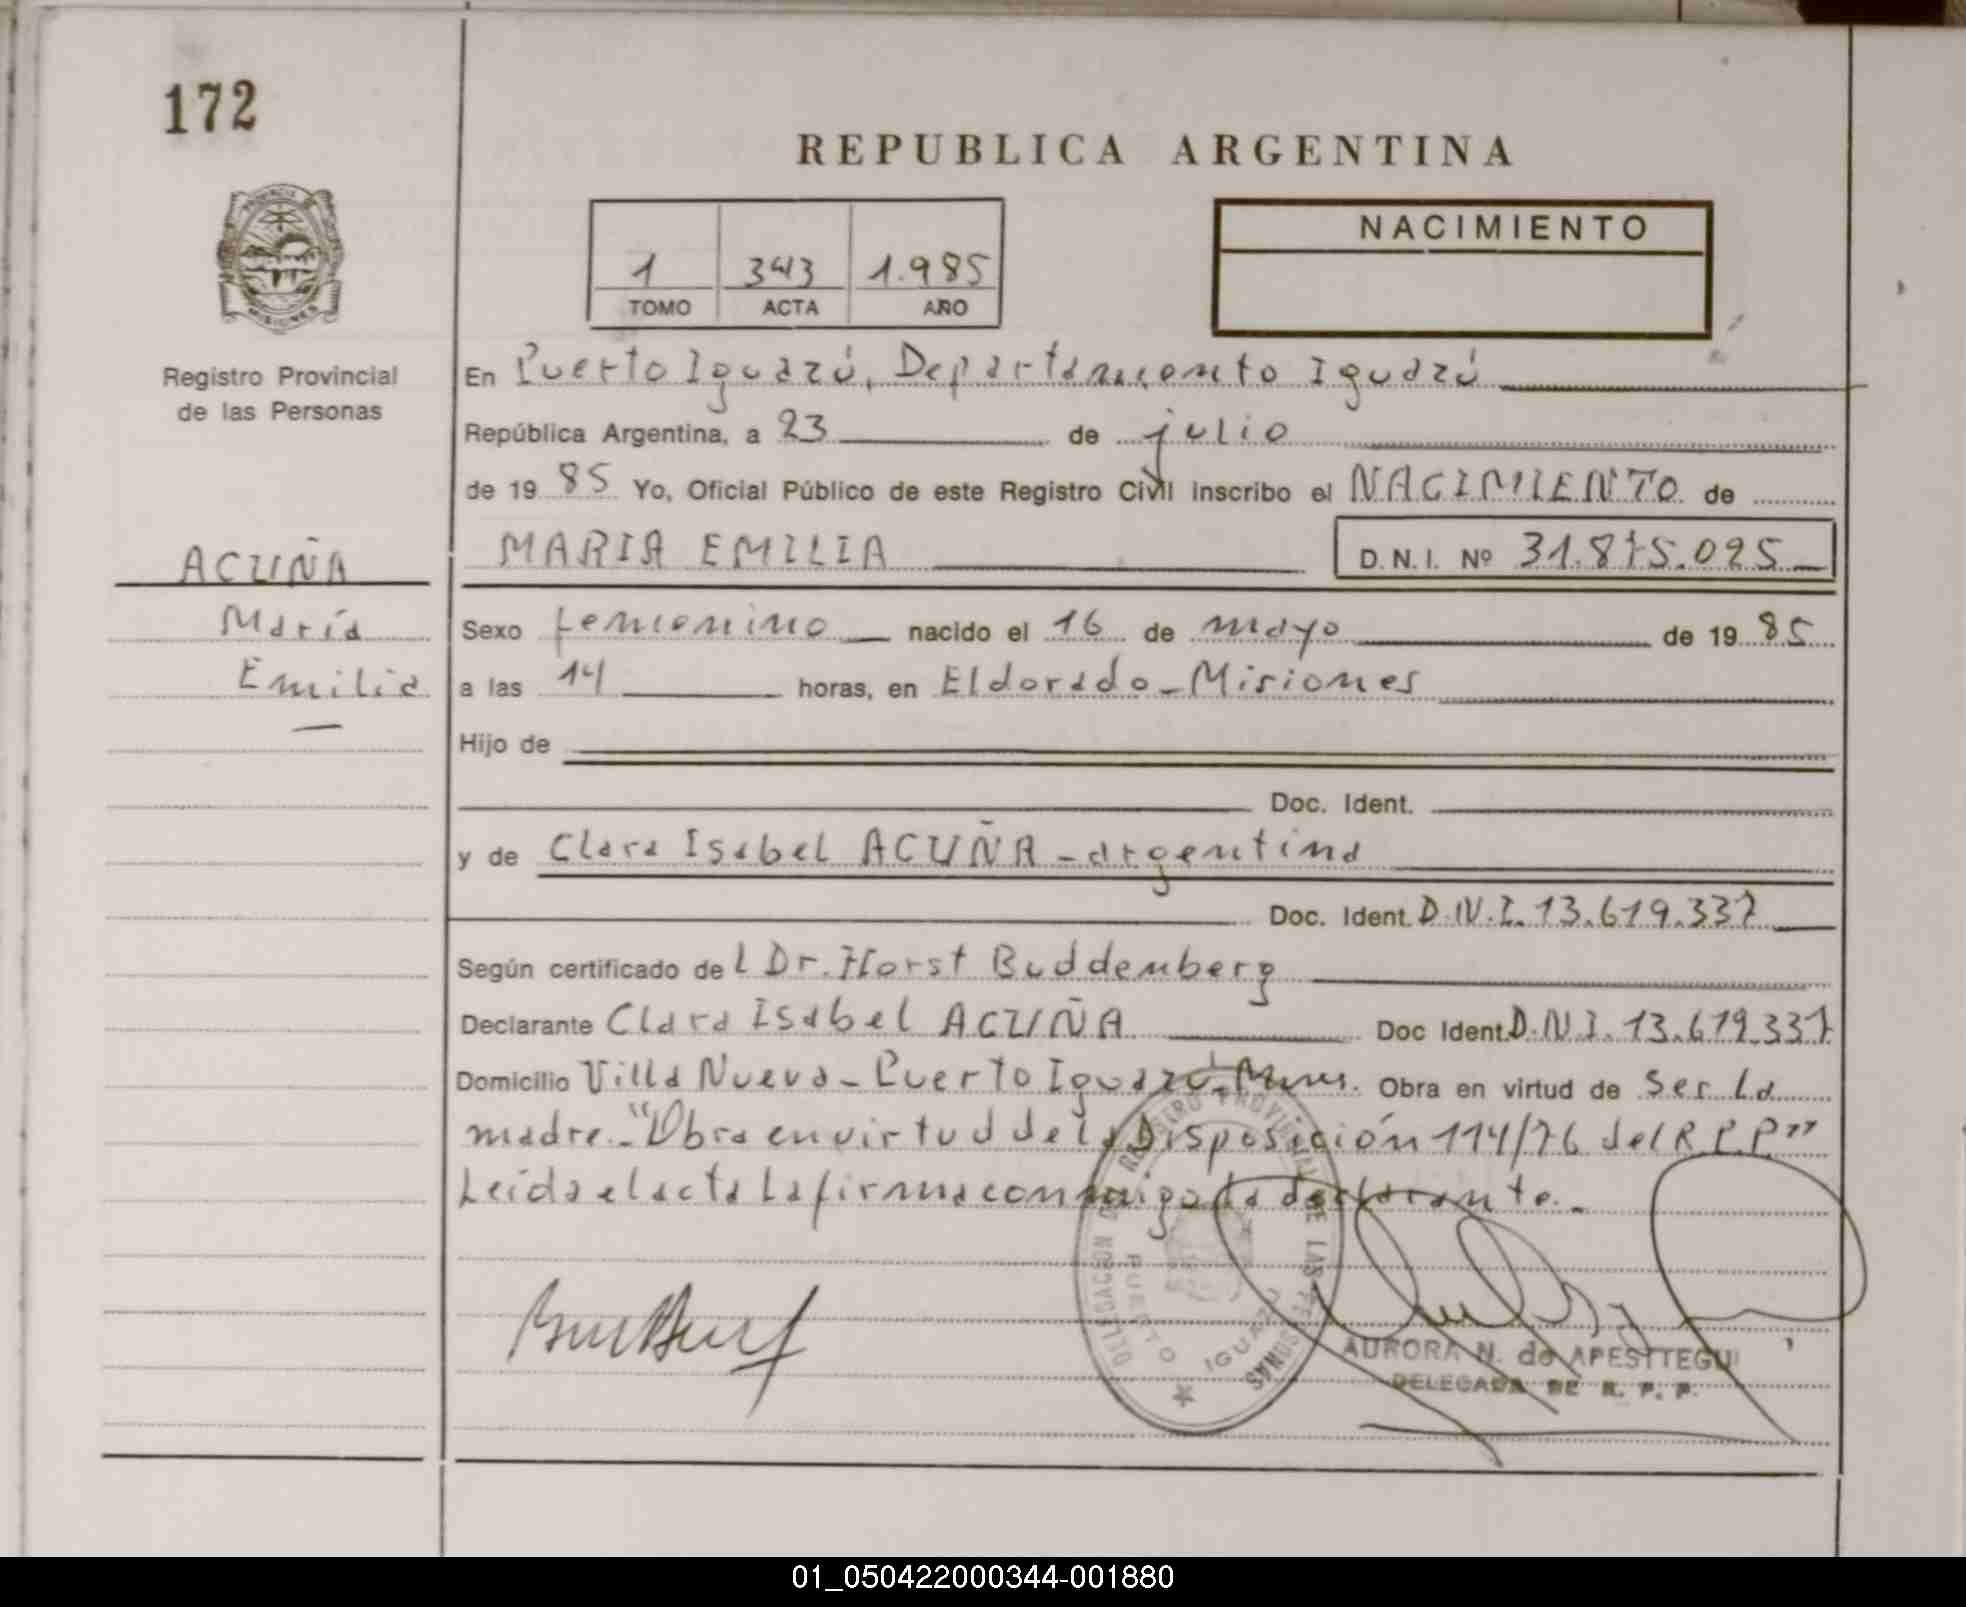 172
REPUBLICA ARGENTINA
NACIMIENTO
1 343 1.985
TOMO ACTA AÑO
PROVINCIA DE MISIONES
Registro Provincial
de las Personas
En Puerto Iguazú, Departamento Iguazú
República Argentina, a 23 de julio
de 1985 Yo, Oficial Público de este Registro Civil inscribo el NACIMIENTO de
ACUÑA
María
Emilia
MARIA EMILIA D.N.I. Nº 31.875.025
Sexo femenino nacido el 16 de mayo de 1985
a las 14 horas, en Eldorado - Misiones
Hijo de
Doc. Ident.
y de Clara Isabel ACUÑA - argentina
Doc. Ident. D.N.I. 13.619.337
Según certificado del Dr. Horst Buddemberg
Declarante Clara Isabel ACUÑA Doc Ident. D.N.I. 13.619.337
Domicilio Villa Nueva - Puerto Iguazú - Mnes. Obra en virtud de ser la
madre.- "Obra en virtud de la Disposición 114/76 del R.P.P"
Leída el acta la firma conmigo la declarante.-
DELEGACION DEL REGISTRO PROVINCIAL DE LAS PERSONAS
PUERTO IGUAZU
AURORA N. de APESTTEGUI
DELEGADA DE R. P. P.
01_050422000344-001880